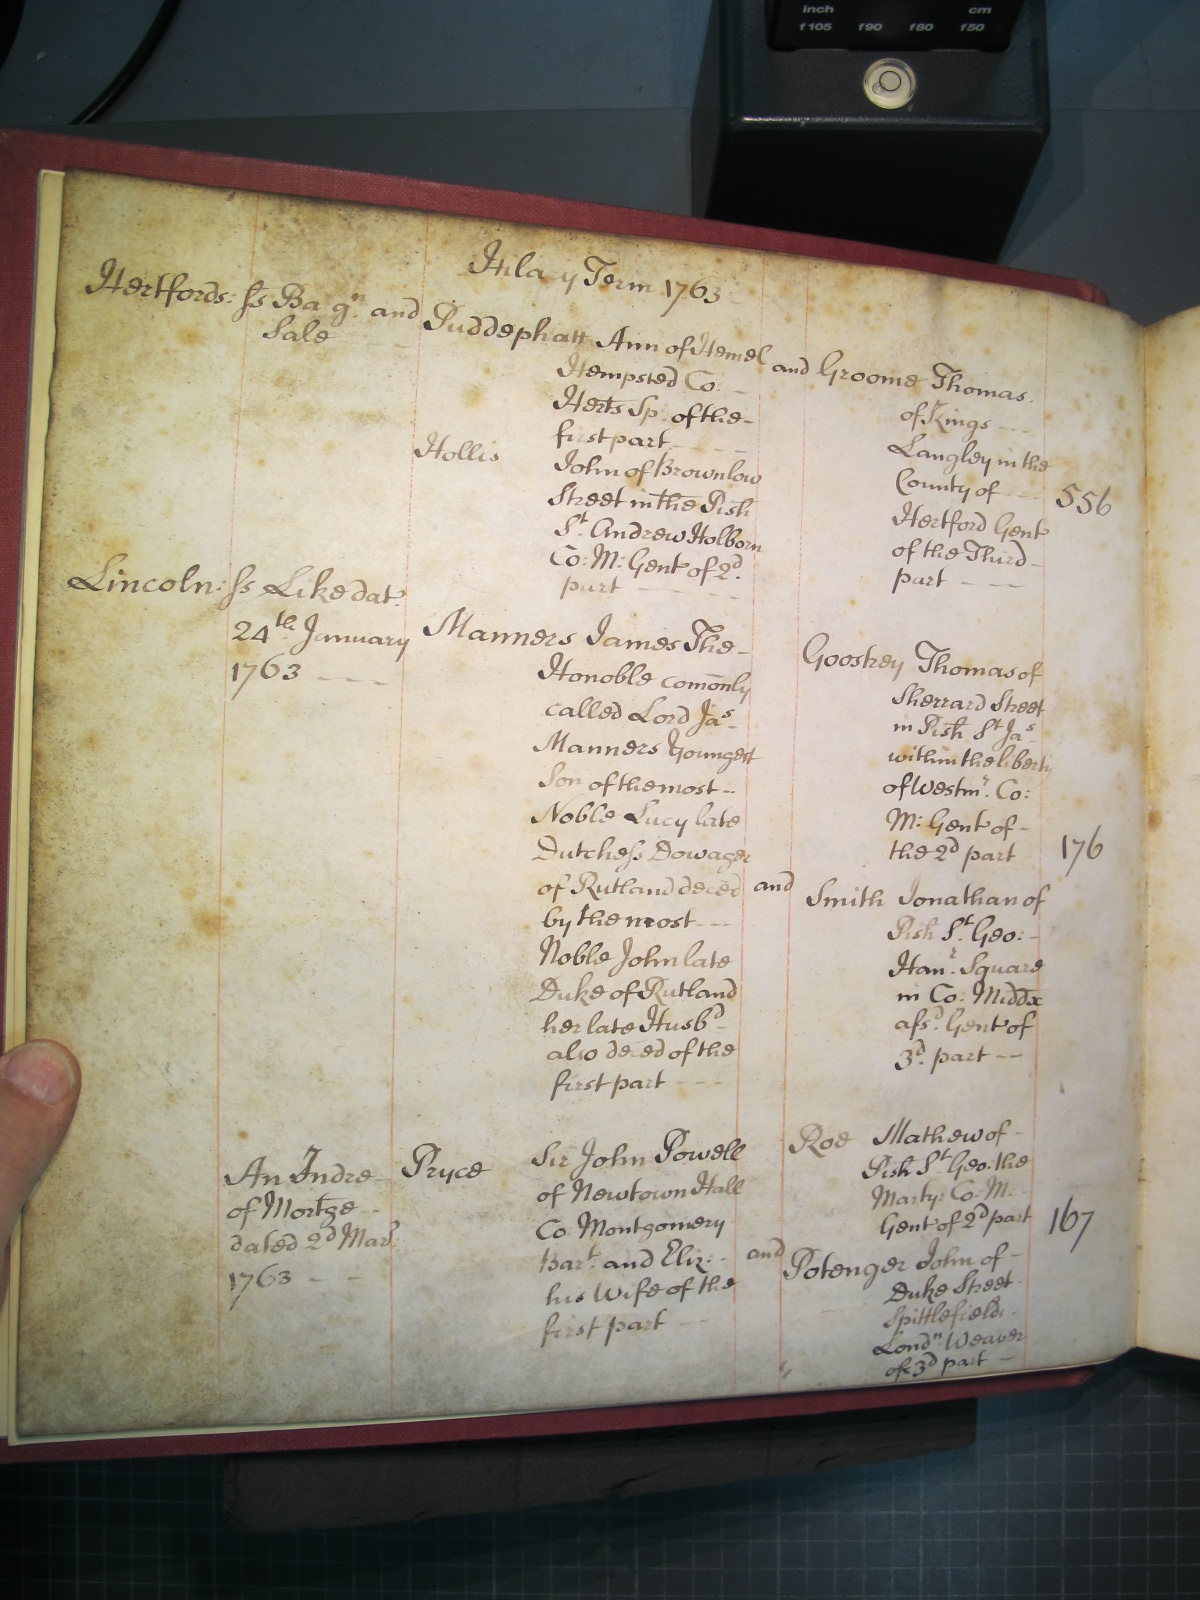 inch cm
f105 f90 f80 f50
Hilary Term 1763
Hertfords: ss Bargn. and
Sale
Puddephatt Ann of Hemel
Hempsted Co.
Herts Sp. of the
first part
Hollis John of Brownlow
Street in the Pish
St. Andrew Holborn
Co: M: Gent of 2d.
part
and
Groome Thomas
of Kings
Langley in the
County of
Hertford Gent
of the Third
part
556
Lincoln: ss Like dat.
24th. January
1763
Manners James The
Honoble comonly
called Lord Jas.
Manners Youngest
Son of the most
Noble Lucy late
Dutchess Dowager
of Rutland deced
by the most
Noble John late
Duke of Rutland
her late Husbd
also deced of the
first part
and
Gooskey Thomas of
Sherrard Street
in Pish St Jas
within the liberty
of Westmr. Co:
M: Gent of
the 2d part
Smith Jonathan of
Pish St. Geo:
Hanr. Square
in Co: Middx
afsd. Gent of
3d. part
176
An Indre
of Mortge
dated 2d Mar.
1763
Pryce Sir John Powell
of Newtown Hall
Co Montgomery
Bart. and Eliz:
his Wife of the
first part
and
Roe Mathew of
Pish St. Geo. the
Martyr Co. M:
Gent of 2d part
Potenger John of
Duke Street
Spittlefields
Londn. Weaver
of 3d part
167